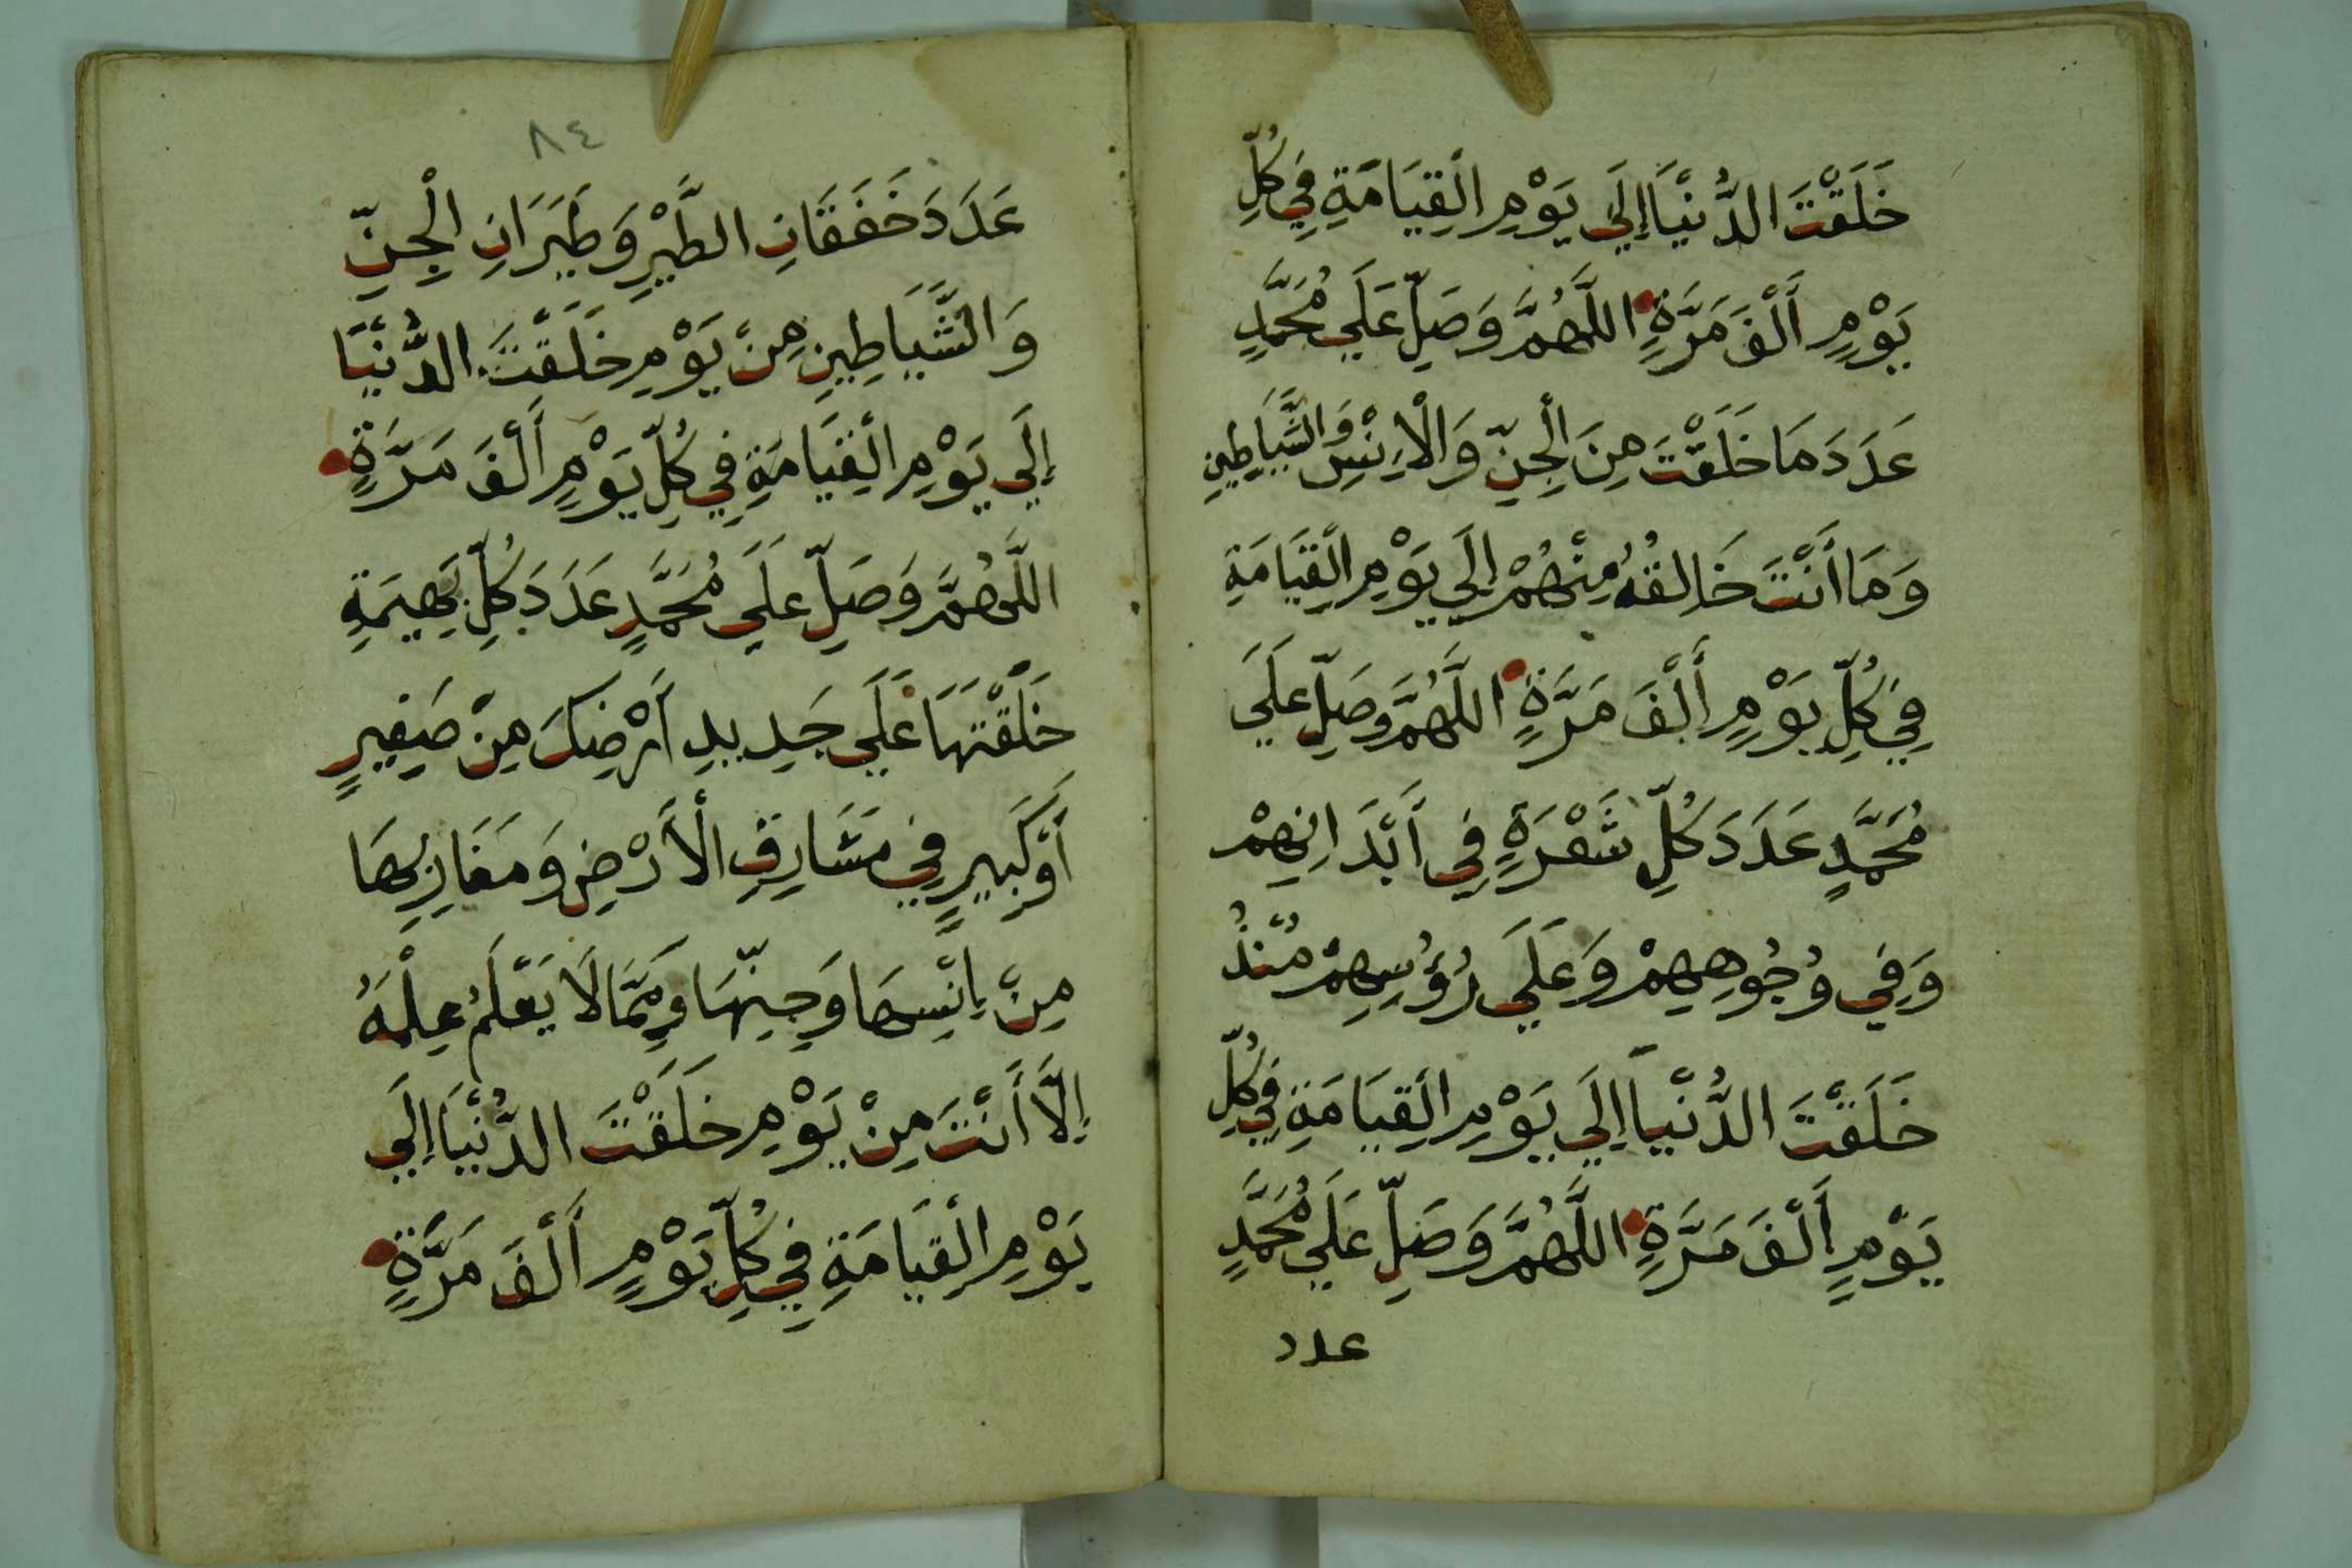 خَلَقْتَ الدُّنْيَا إِلَى يَوْمِ الْقِيَامَةِ فِي كُلِّ
يَوْمٍ أَلْفَ مَرَّةٍ اللَّهُمَّ وَصَلِّ عَلَى مُحَمَّدٍ
عَدَدَ مَا خَلَقْتَ مِنَ الْجِنِّ وَالْاِنْسِ وَالشَّيَاطِينِ
وَمَا أَنْتَ خَالِقُهُ مِنْهُمْ إِلَى يَوْمِ الْقِيَامَةِ
فِي كُلِّ يَوْمٍ أَلْفَ مَرَّةٍ اللَّهُمَّ وَصَلِّ عَلَى
مُحَمَّدٍ عَدَدَ كُلِّ شَعْرَةٍ فِي أَبْدَانِهِمْ
وَفِي وُجُوهِهِمْ وَعَلَى رُؤُسِهِمْ مُنْذُ
خَلَقْتَ الدُّنْيَا إِلَى يَوْمِ الْقِيَامَةِ فِي كُلِّ
يَوْمٍ أَلْفَ مَرَّةٍ اللَّهُمَّ وَصَلِّ عَلَى مُحَمَّدٍ
عدد
٨٤
عَدَدَ خَفَقَانِ الطَّيْرِ وَطَيَرَانِ الْجِنِّ
وَالشَّيَاطِينِ مِنْ يَوْمِ خَلَقْتَ الدُّنْيَا
إِلَى يَوْمِ الْقِيَامَةِ فِي كُلِّ يَوْمٍ أَلْفَ مَرَّةٍ
اللَّهُمَّ وَصَلِّ عَلَى مُحَمَّدٍ عَدَدَ كُلِّ بَهِيمَةٍ
خَلَقْتَهَا عَلَى جَدِيدِ أَرْضِكَ مِنْ صَغِيرٍ
أَوْ كَبِيرٍ فِي مَشَارِقِ الْأَرْضِ وَمَغَارِبِهَا
مِنْ إِنْسِهَا وَجِنِّهَا وَمِمَّا لَا يَعْلَمُ عِلْمَهُ
إِلَّا أَنْتَ مِنْ يَوْمِ خَلَقْتَ الدُّنْيَا إِلَى
يَوْمِ الْقِيَامَةِ فِي كُلِّ يَوْمٍ أَلْفَ مَرَّةٍ